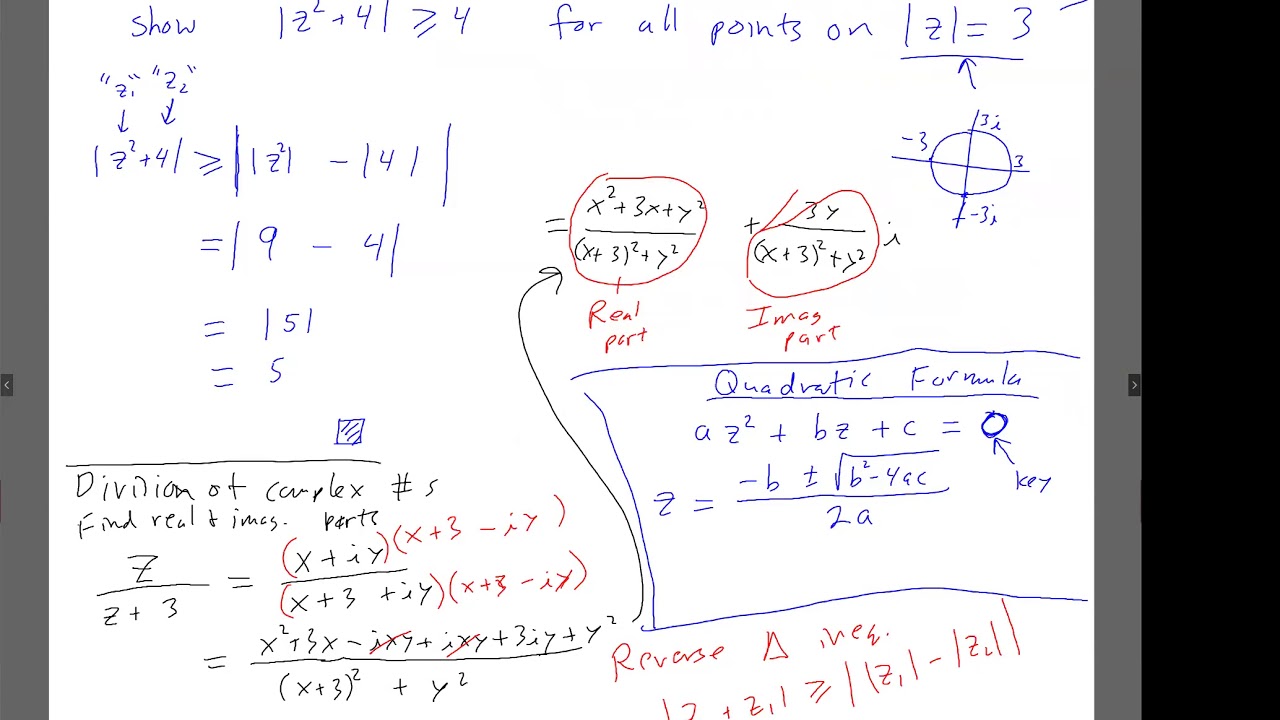 show |z²+4| ⩾ 4 for all points on |z| = 3
"z₁" "z₂"
|z²+4| ⩾ ||z²| - |4||
= |9 - 4|
= |5|
= 5
3i
-3
3
-3i
= x²+3x+y² / (x+3)²+y² + 3y / (x+3)²+y² i
Real part
Imag part
Quadratic Formula
az² + bz + c = 0
key
z = -b ± √b²-4ac / 2a
Division of complex #s
Find real + imag. parts
z / z+3 = (x+iy)(x+3-iy) / (x+3+iy)(x+3-iy)
= x²+3x-ixy+ixy+3iy+y² / (x+3)² + y²
Reverse Δ ineq.
⩾ ||z₁| - |z₂||